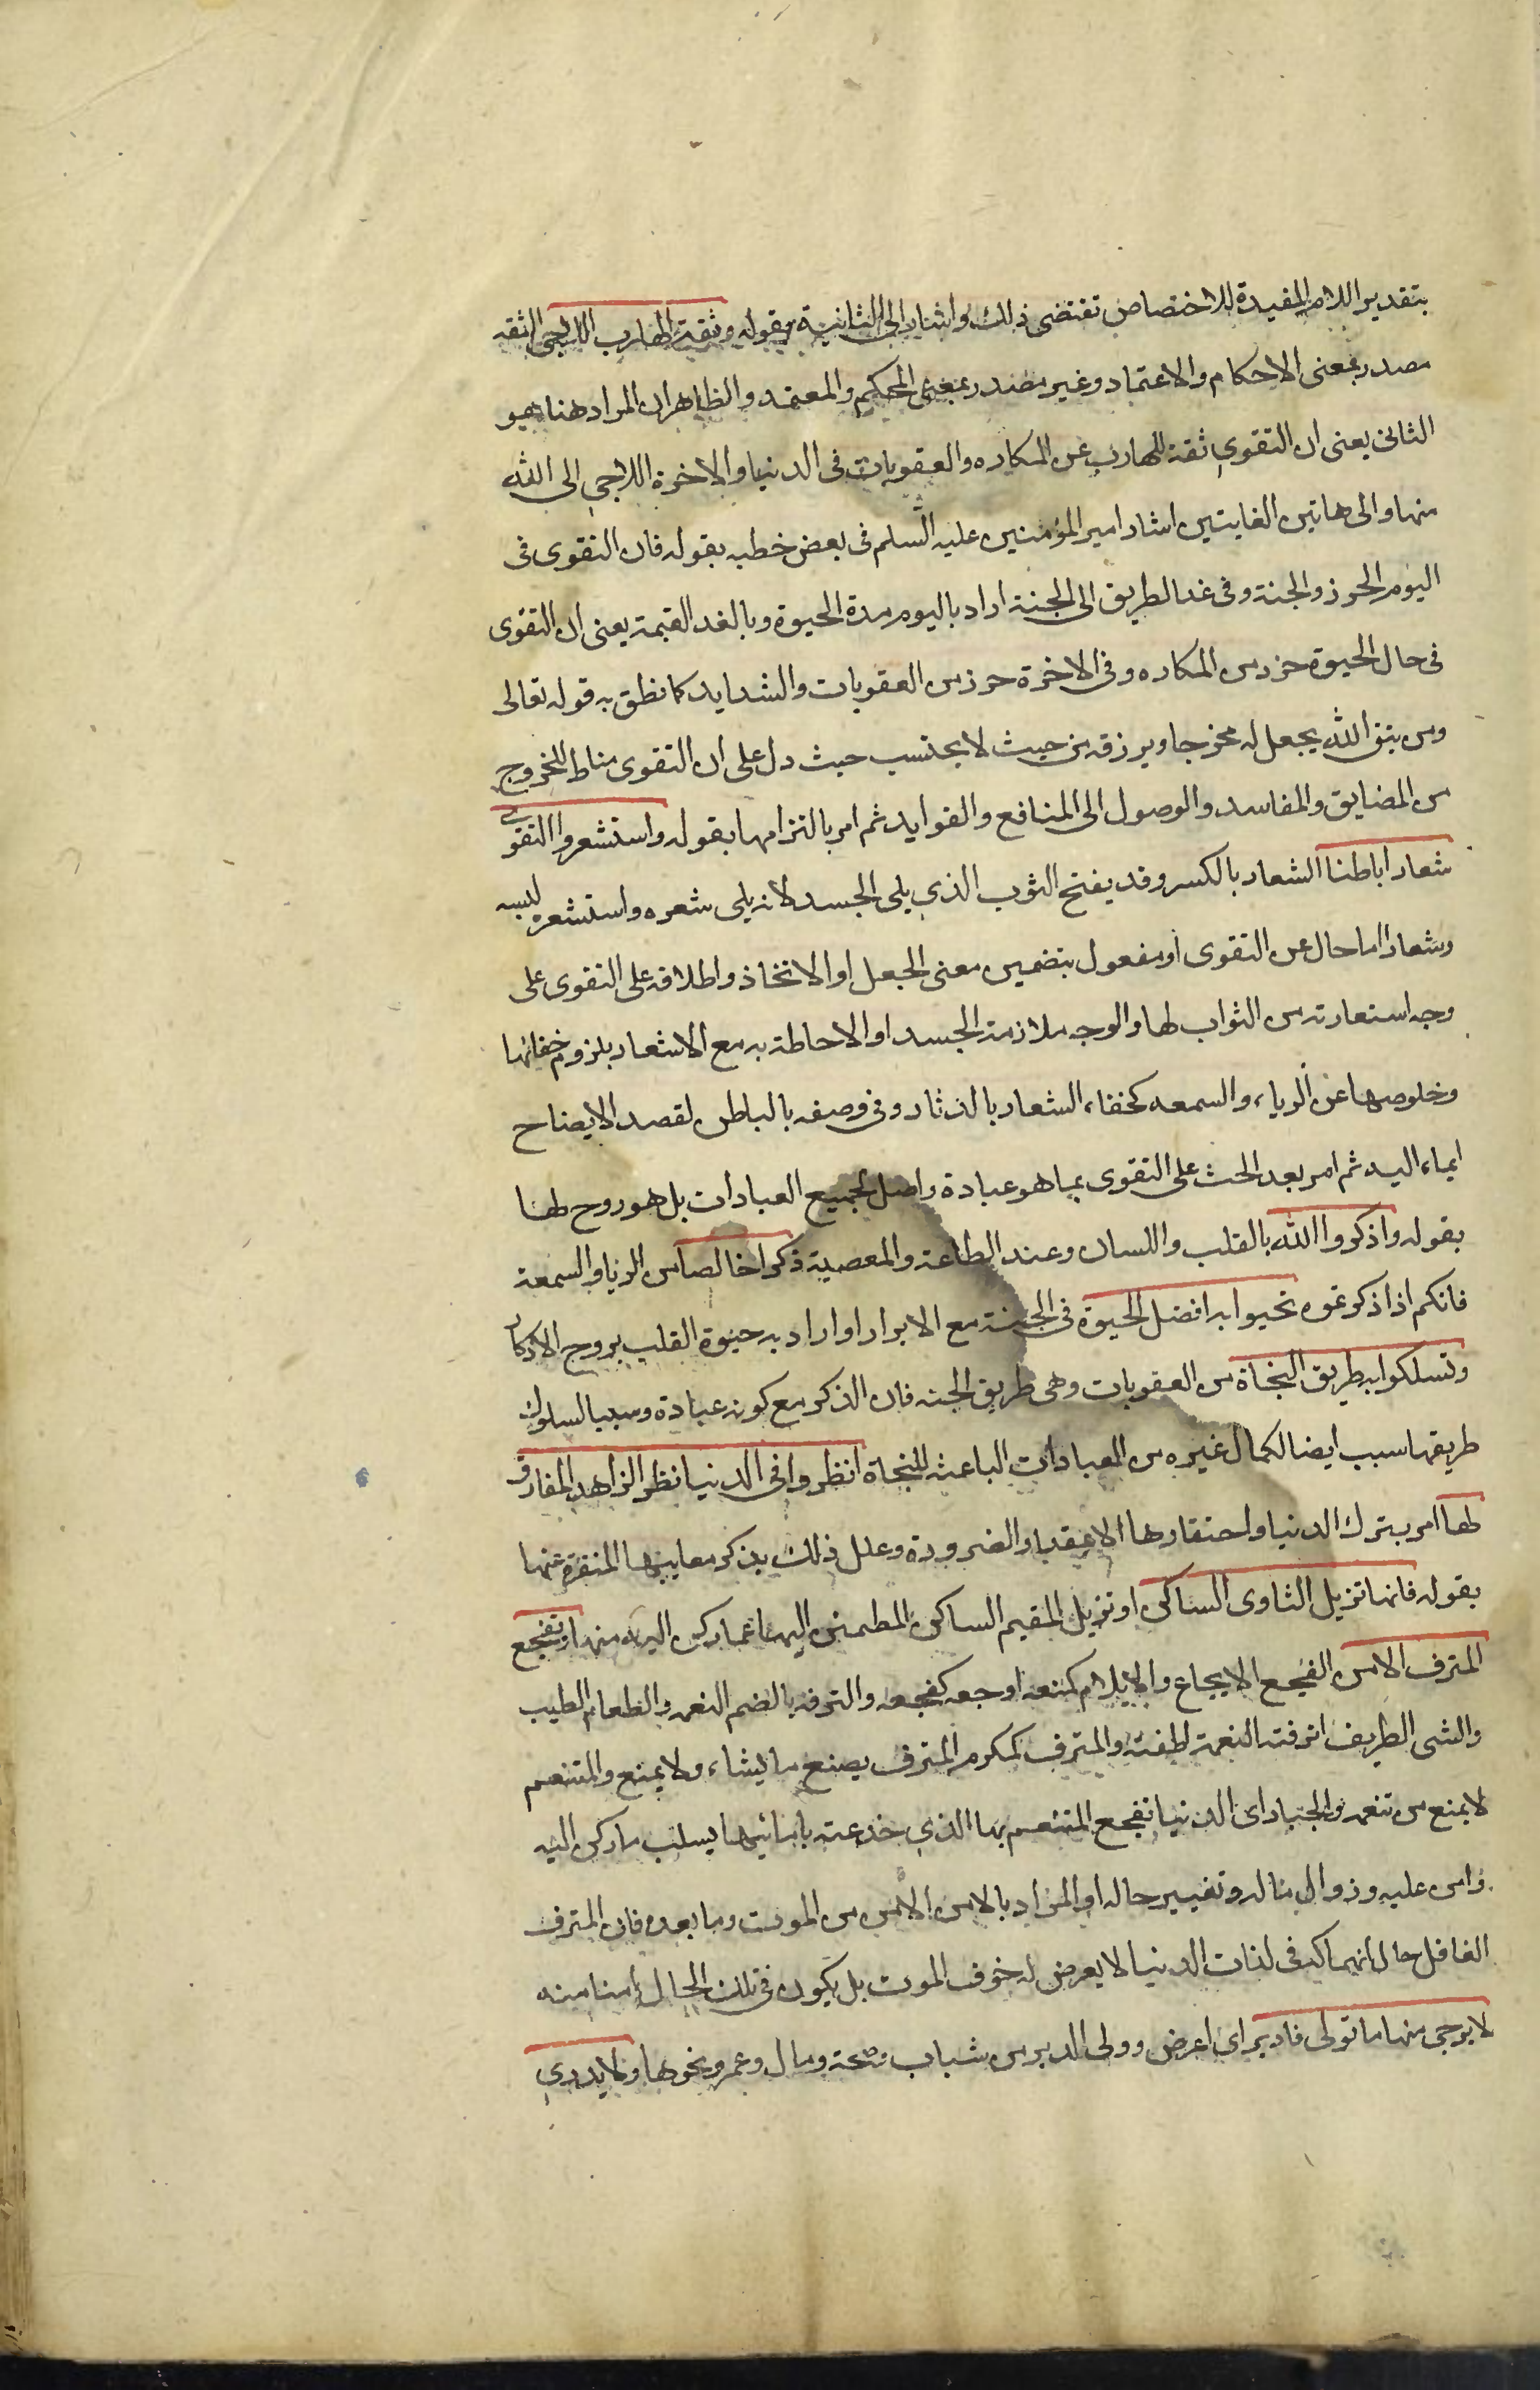 بتقدير اللام المفيدة للاختصاص تقتضى ذلك واشار الى الثانية بقوله وثقة الهارب اللاجى الثقه
مصدر بمعنى الاحكام والاعتماد وغير مصدر بمعنى المحكم والمعتمد والظاهر ان المراد هنا هو
الثانى يعنى ان التقوى ثقة للهارب عن المكاره والعقوبات فى الدنيا والاخرة اللاجى الى الله
منها والى هاتين الغايتين اشار امير المؤمنين عليه السلم فى بعض خطبه بقوله فان التقوى فى
اليوم الحرز والجنة وفى غد الطريق الى الجنة اراد باليوم مدة الحيوة وبالغد القيمة يعنى ان التقوى
فى حال الحيوة حرز من المكاره وفى الاخرة حرز من العقوبات والشدايد كما نطق به قوله تعالى
ومن يتق الله يجعل له مخرجا ويرزقه من حيث لا يحتسب حيث دل على ان التقوى مناط للخروج
من المضايق والمفاسد والوصول الى المنافع والفوايد ثم امر بالتزامها بقوله واستشعروا التقوى
شعارا باطنا الشعار بالكسر وقد يفتح الثوب الذى يلى الجسد لانه يلى شعره واستشعره لبسه
وشعارا اما حال عن التقوى او مفعول بتضمين معنى الجعل او الاتخاذ واطلاقه على التقوى على
وجه استعارته من الثواب لها والوجه ملازمة الجسد او الاحاطة به مع الاشعار بلزوم خفائها
وخلوصها عن الرياء والسمعه كخفاء الشعار بالدثار وفى وصفه بالباطن لقصد الايضاح
ايماء اليه ثم امر بعد الحث على التقوى بما هو عبادة واصل لجميع العبادات بل هو روح لها
بقوله واذكروا الله بالقلب واللسان وعند الطاعة والمعصية ذكرا خالصا من الريا والسمعة
فانكم اذا ذكرتموه تحيوا به افضل الحيوة فى الجنة مع الابرار او اراد به حيوة القلب بروح الاذكار
وتسلكوا به طريق النجاة من العقوبات وهى طريق الجنه فان الذكر مع كونه عبادة وسببا لسلوك
طريقها سبب ايضا لكمال غيره من العبادات الباعثه للنجاة انظروا فى الدنيا نظر الزاهد المفارق
لها امر بترك الدنيا واحتقارها الا بقدر الضرورة وعلل ذلك بذكر معايبها المنفرة عنها
بقوله فانها تزيل الثاوى الساكن او تزيل المقيم الساكن المطمئن اليها عما ركن اليه منها وتفجع
المترف الامن الفجع الايجاع والايلام كمنعه اوجعه كفجعه والترفه بالضم النعمه والطعام الطيب
والشى الظريف اترفته النعمة لطفته والمترف كمكرم المترف يصنع ما يشاء ولا يمنع والمتنعم
لا يمنع من تنعمه والجبار اى الدنيا تفجع المتنعم بها الذى خدعته بابنائها يسلب ما ركن اليه
وامن عليه وزوال ماله وتغيير حاله او المراد بالامن الامن من الموت وما بعده فان المترف
الغافل حال انهماكه فى لذات الدنيا لا يعرض له خوف الموت بل يكون فى تلك الحال امنا منه
لا يرجى منها ما تولى فادبر اى اعرض وولى الدبر من شباب وصحة ومال وعمر ونحوها ولا يدرى